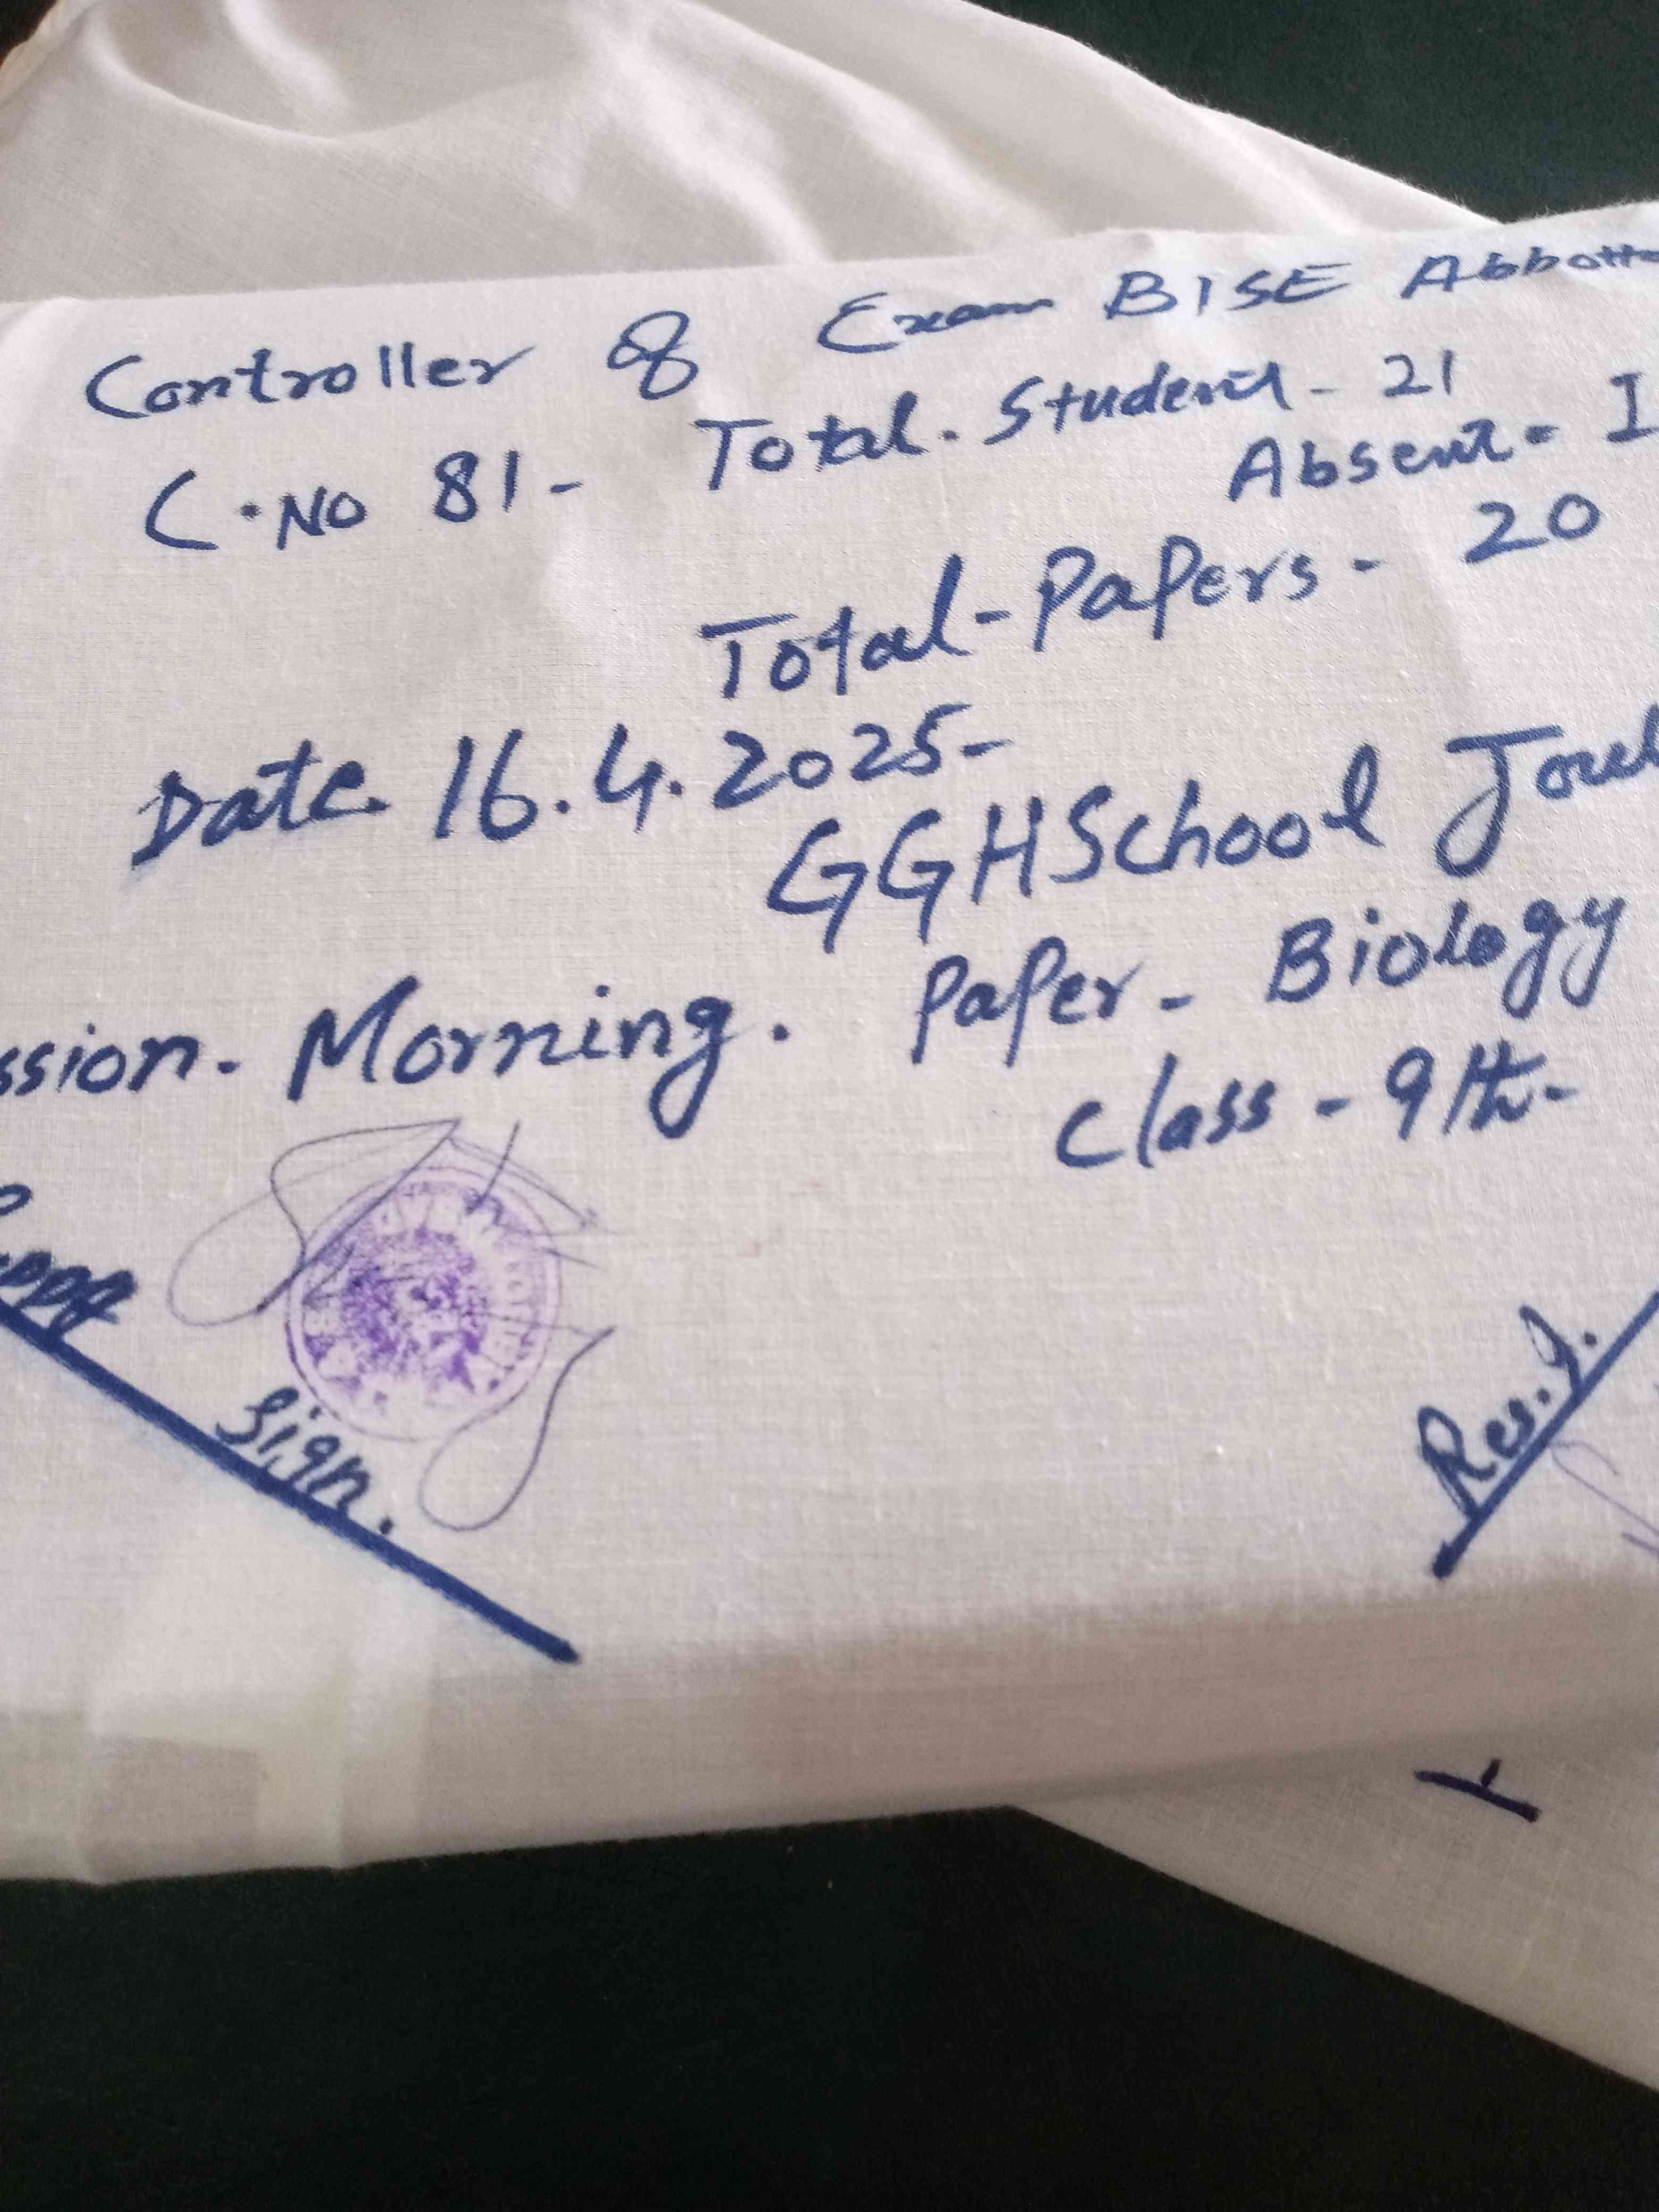 Controller of Exam BISE Abbotta
C.No 81- Total. Student - 21
Absent - I
Total-Papers - 20
Date 16.4.2025-
GGHSchool Joul
ssion. Morning. Paper - Biology
Class - 9th-
Sign.
Res.I.